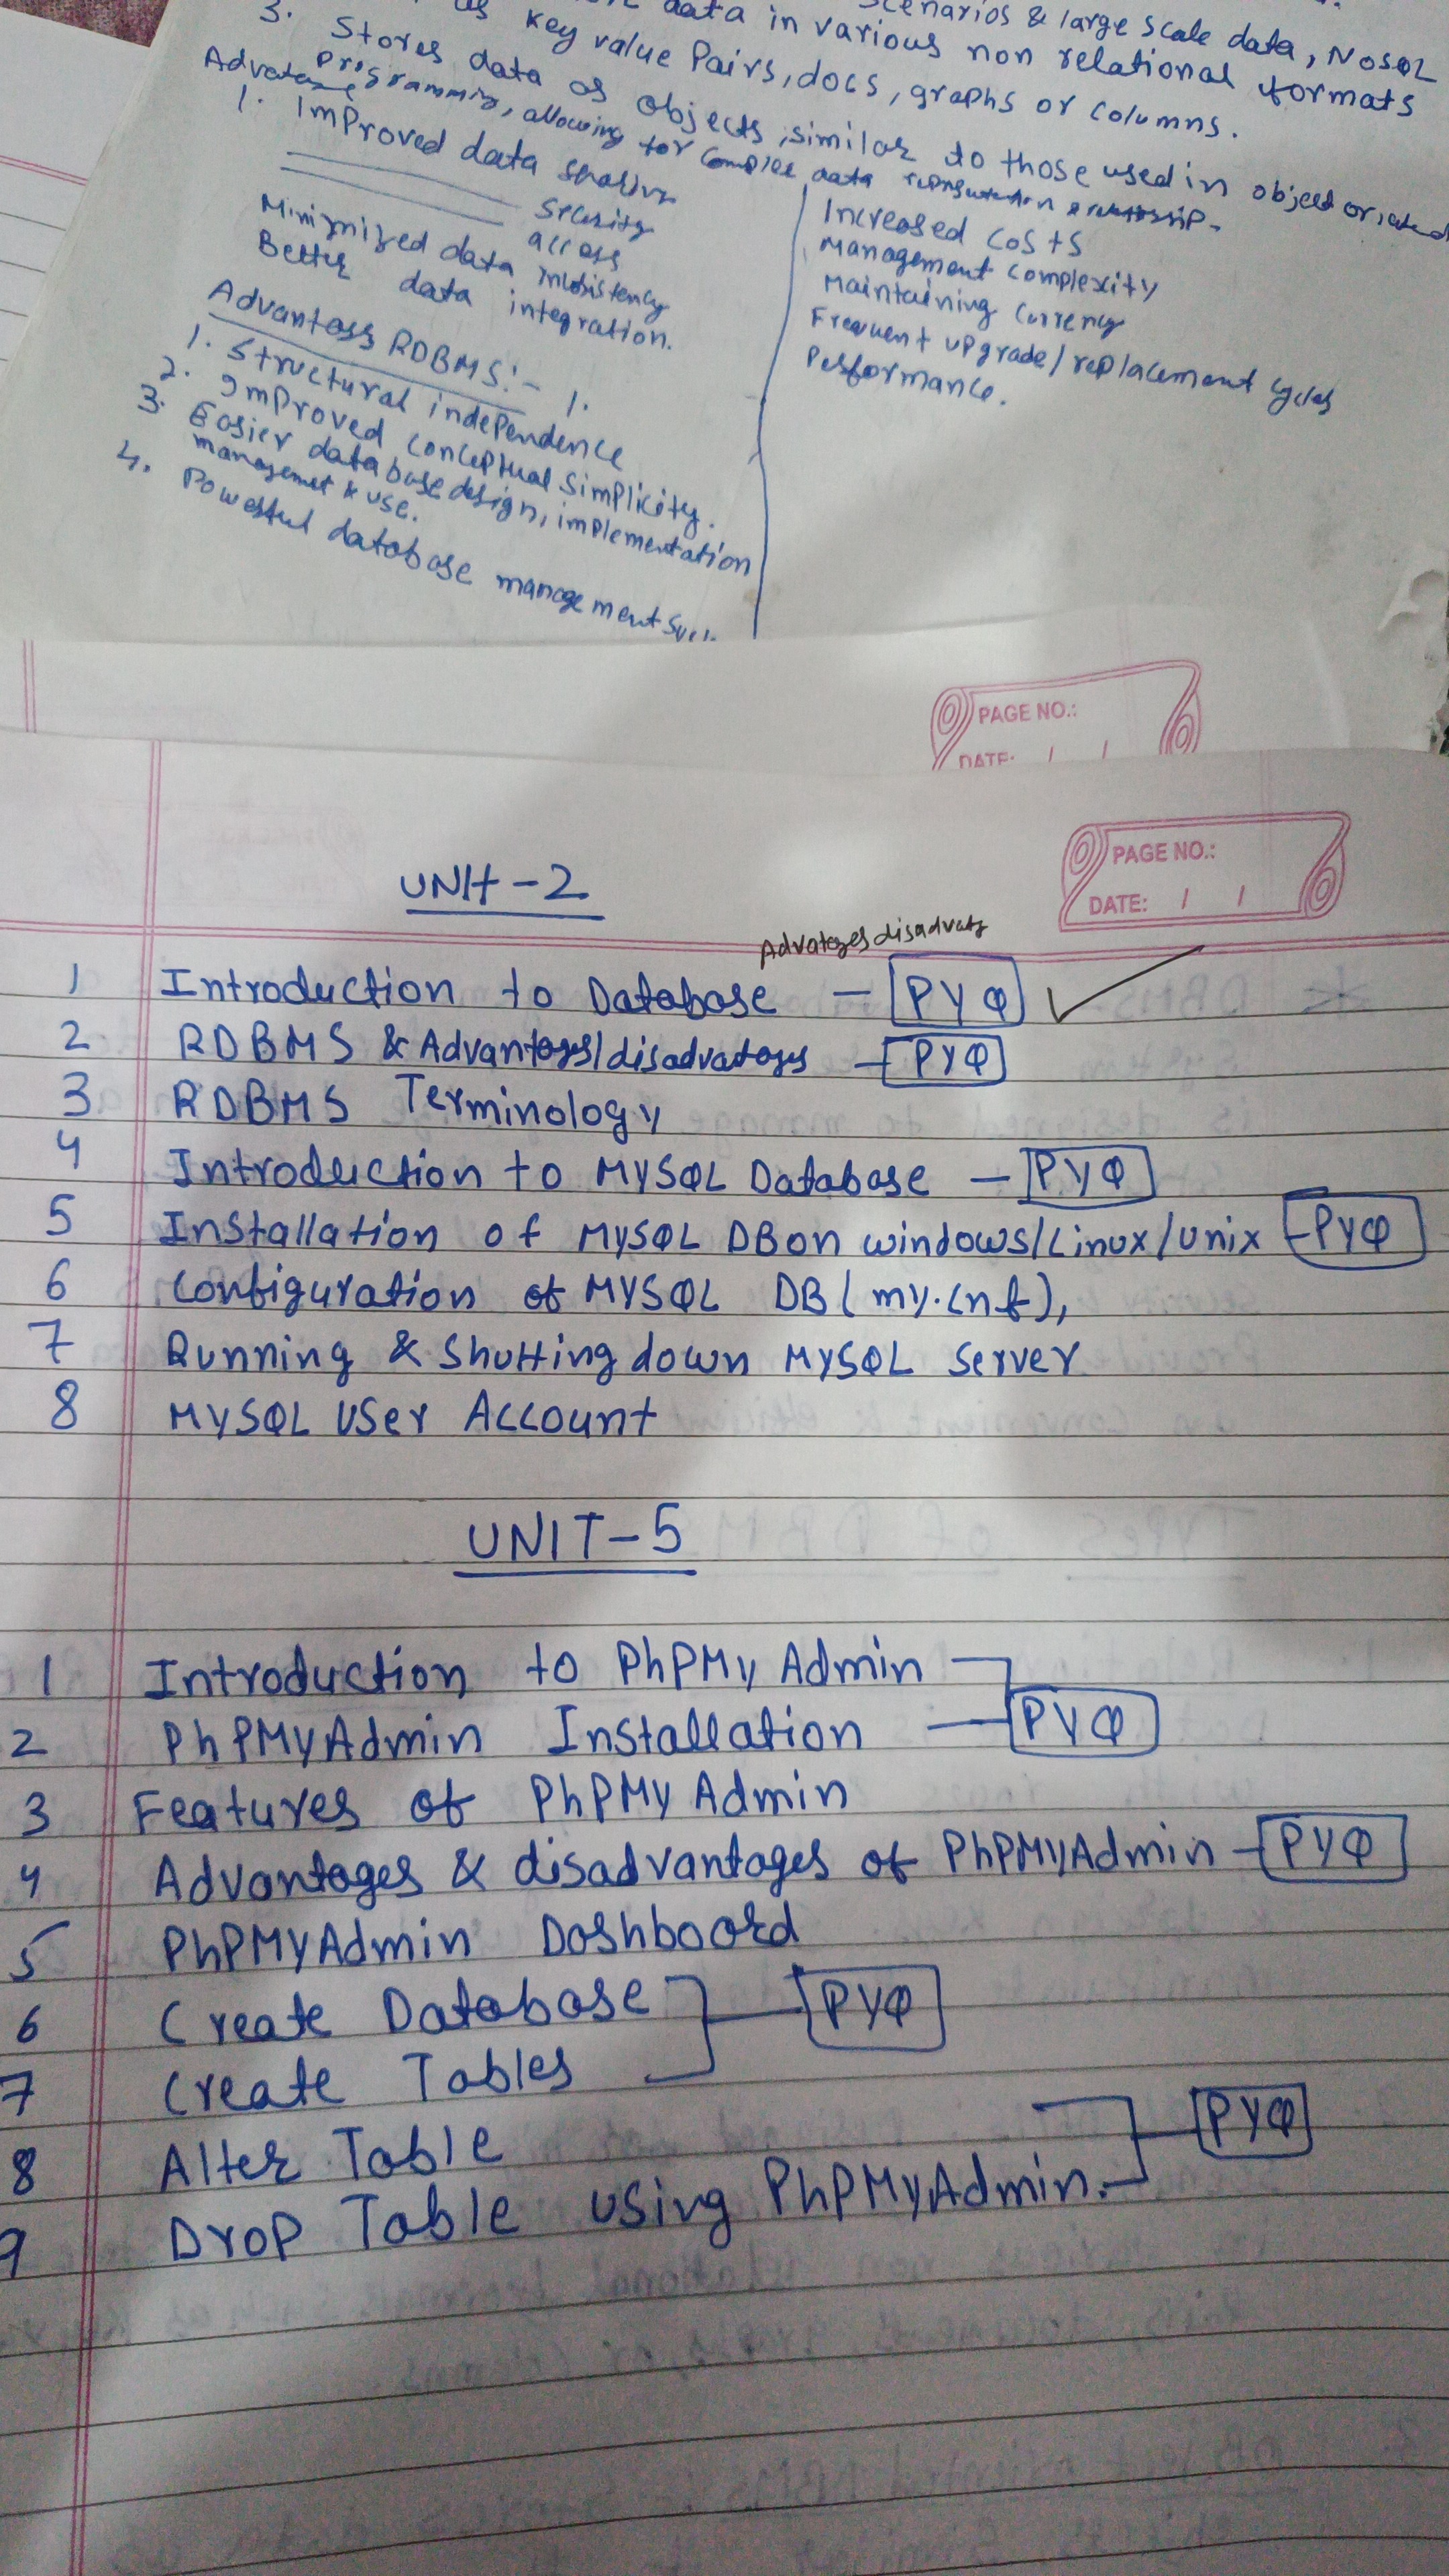 scenarios & large scale data, NoSQL
data in various non relational formats
as key value Pairs, docs, graphs or columns.
3. Stores data as objects, similar to those used in object oriented
Programming, allowing for complex data
Advatage
1. Improved data
Security
access
Minimized data
Better data integration.
Increased costs
Management complexity
Maintaining currency
Frequent upgrade/replacement cycles
Performance.
RDBMS:- 1.
1. Structural independence
2. Improved conceptual simplicity.
3. Easier database design, implementation
management & use.
4. Powerful database management
PAGE NO.:
DATE: / /
PAGE NO.:
DATE: / /
UNIT-2
1 Introduction to Database - PYQ
2 RDBMS & - PYQ
3 RDBMS Terminology
4 Introduction to MYSQL Database - PYQ
5 Installation of MySQL DB on windows/Linux/Unix - PYQ
6 Configuration of MYSQL DB (my.cnf),
7 Running & Shutting down MYSQL Server
8 MYSQL User Account
UNIT-5
1 Introduction to PhPMyAdmin
2 PhPMyAdmin Installation - PYQ
3 Features of PhPMyAdmin
4 Advantages & disadvantages of PhPMyAdmin - PYQ
5 PhPMyAdmin Dashboard
6 Create Database
PYQ
7 Create Tables
8 Alter Table
PYQ
9 Drop Table using PhPMyAdmin.